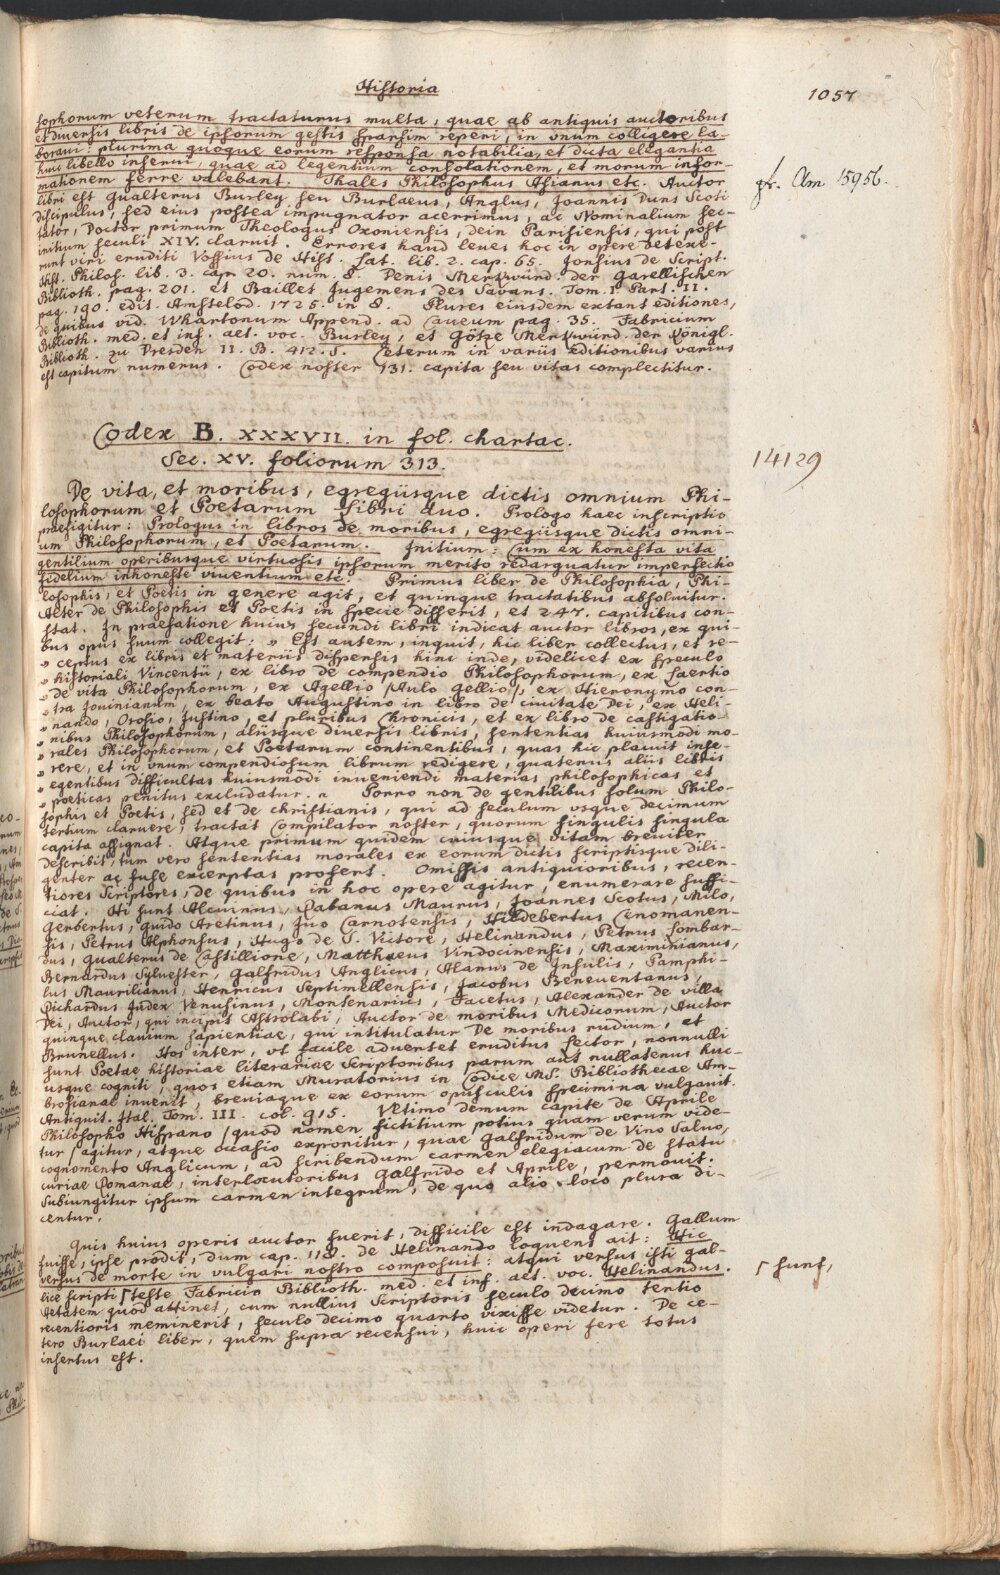 Historia
1057
sophorum veterum tractaturus multa, quae ab antiquis auctoribus
et diversis libris de ipsorum gestis sparsim reperi, in vnum colligere la-
boravi: plurima quoque eorum responsa notabilia, et dicta elegantia
huic libello inserui, quae ad legentium consolationem, et morum infor-
mationem ferre valebant. Thales Philosophus Asianus etc. Auctor
libri est Gualterus Burley seu Burlaeus, Anglus, Joannis Duns Scoti
discipulus, sed eius postea impugnator acerrimus, ac Nominalium sec-
tator, Doctor primum Theologus Oxoniensis, dein Parisiensis, qui post
initium seculi XIV. claruit. Errores haud leues hoc in opere detexe-
runt viri eruditi Vossius de Hist. Lat. lib. 2. cap. 65. Jonsius de Script.
Hist. Philos. lib. 3. cap. 20. num. 8. Denis Merkwürd. der Garellischen
Biblioth. pag. 201. et Baillet Jugemens des Savans. Tom. I. Part. II.
pag. 190. edit. Amstelod. 1725. in 8. Plures eiusdem extant editiones,
de quibus vid. Whartonum Append. ad Caueum pag. 35. Fabricium
Biblioth. med. et inf. aet. voc. Burley, et Götze Merkwürd. der Königl.
Biblioth. zu Dresden II. B. 412. S. Ceterum in variis editionibus varius
est capitum numerus. Codex noster 131. capita seu vitas complectitur.
gf. Clm 15956.
Codex B. XXXVII. in fol. chartac.
Sec. XV. foliorum 313.
14129
De vita, et moribus, egregiisque dictis omnium Phi-
losophorum et Poetarum libri duo. Prologo haec inscriptio
praefigitur: Prologus in libros de moribus, egregiisque dictis omni-
um Philosophorum, et Poetarum. Initium: Cum ex honesta vita
gentilium operibusque virtuosis ipsorum merito redarguatur imperfectio
fidelium inhoneste viuentium etc. Primus liber de Philosophia, Phi-
losophis, et Poetis in genere agit, et quinque tractatibus absoluitur.
Alter de Philosophis et Poetis in specie disserit, et 247. capitibus con-
stat. In praefatione huius secundi libri indicat auctor libros, ex qui-
bus opus suum collegit: „ Est autem, inquit, hic liber collectus, et re-
„ ceptus ex libris et materiis dispersis hinc inde, videlicet ex speculo
„ historiali Vincentii, ex libro de compendio Philosophorum, ex Laertio
„ de vita Philosophorum, ex Agellio /Aulo Gellio/, ex Hieronymo con-
„ tra Jovinianum, ex beato Augustino in libro de ciuitate Dei, ex Heli-
„ nando, Orosio, Justino, et pluribus Chronicis, et ex libro de castigatio-
„ nibus Philosophorum, aliisque diuersis libris, sententias huiusmodi mo-
„ rales Philosophorum, et Poetarum continentibus, quas hic placuit inse-
„ rere, et in vnum compendiosum librum redigere, quatenus aliis libris
„ egentibus difficultas huiusmodi inueniendi materias philosophicas et
„ poeticas penitus excludatur. „ Porro non de gentilibus solum Philo-
sophis et Poetis, sed et de christianis, qui ad seculum vsque decimum
tertium claruere, tractat Compilator noster, quorum singulis singula
capita assignat. Atque primum quidem cuiusque vitam breuiter
describit, tum vero sententias morales ex eorum dictis scriptisque dili-
genter ac fuse excerptas profert. Omissis antiquioribus, recen-
tiores Scriptores, de quibus in hoc opere agitur, enumerare suffi-
ciat. Hi sunt Alcuinus, Rabanus Maurus, Joannes Scotus, Milo,
Gerbertus, Guido Aretinus, Juo Carnotensis, Hildebertus Cenomanen-
sis, Petrus Alphonsus, Hugo de S. Victore, Helinandus, Petrus Lombar-
dus, Gualterus de Castillione, Matthaeus Vindocinensis, Maximinianus,
Bernardus Syluester, Galfridus Anglicus, Alanus de Insulis, Pamphi-
lus Maurilianus, Henricus Septimellensis, Jacobus Beneuentanus,
Richardus Judex Venusinus, Montenarius, Facetus, Alexander de villa
Dei, Auctor, qui incipit Astrolabi, Auctor de moribus Medicorum, Auctor
quinque clauium sapientiae, qui intitulatur De moribus rudium, et
Brunellus. Hos inter, vt facile aduertet eruditus Lector, nonnulli
sunt Poetae historiae literariae Scriptoribus parum aut nullatenus huc-
usque cogniti, quos etiam Muratorius in Codice MS. Bibliothecae Am-
brosianae inuenit, breuiaque ex eorum opusculis specimina vulgauit.
Antiquit. Ital. Tom. III. col. 915. Vltimo demum capite de Aprile
Philosopho Hispano /quod nomen fictitium potius quam verum vide-
tur/ agitur, atque occasio exponitur, quae Galfridum de Vino Saluo,
cognomento Anglicum, ad scribendum carmen elegiacum de statu
curiae Romanae, interlocutoribus Galfrido et Aprile, permouit.
Subiungitur ipsum carmen integrum, de quo alio loco plura di-
centur.
Quis huius operis auctor fuerit, difficile est indagare. Gallum
fuisse, ipse prodit, dum cap. 118. de Helinando loquens ait: Hic
versus de morte in vulgari nostro composuit: atqui versus isti gal-
lice scripti ſ teste Fabricio Biblioth. med. et inf. aet. voc. Helinandus.
Aetatem quod attinet, cum nullius Scriptoris seculo decimo tertio
recentioris meminerit, seculo decimo quarto vixisse videtur. De ce-
tero Burlaei liber, quem supra recensui, huic operi fere totus
insertus est.
ſ sunt,